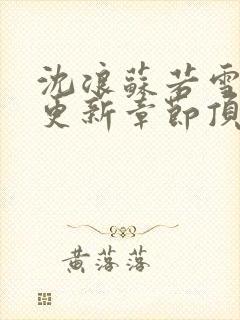 沈浪蘇若雪
更新章節頂
黃落落